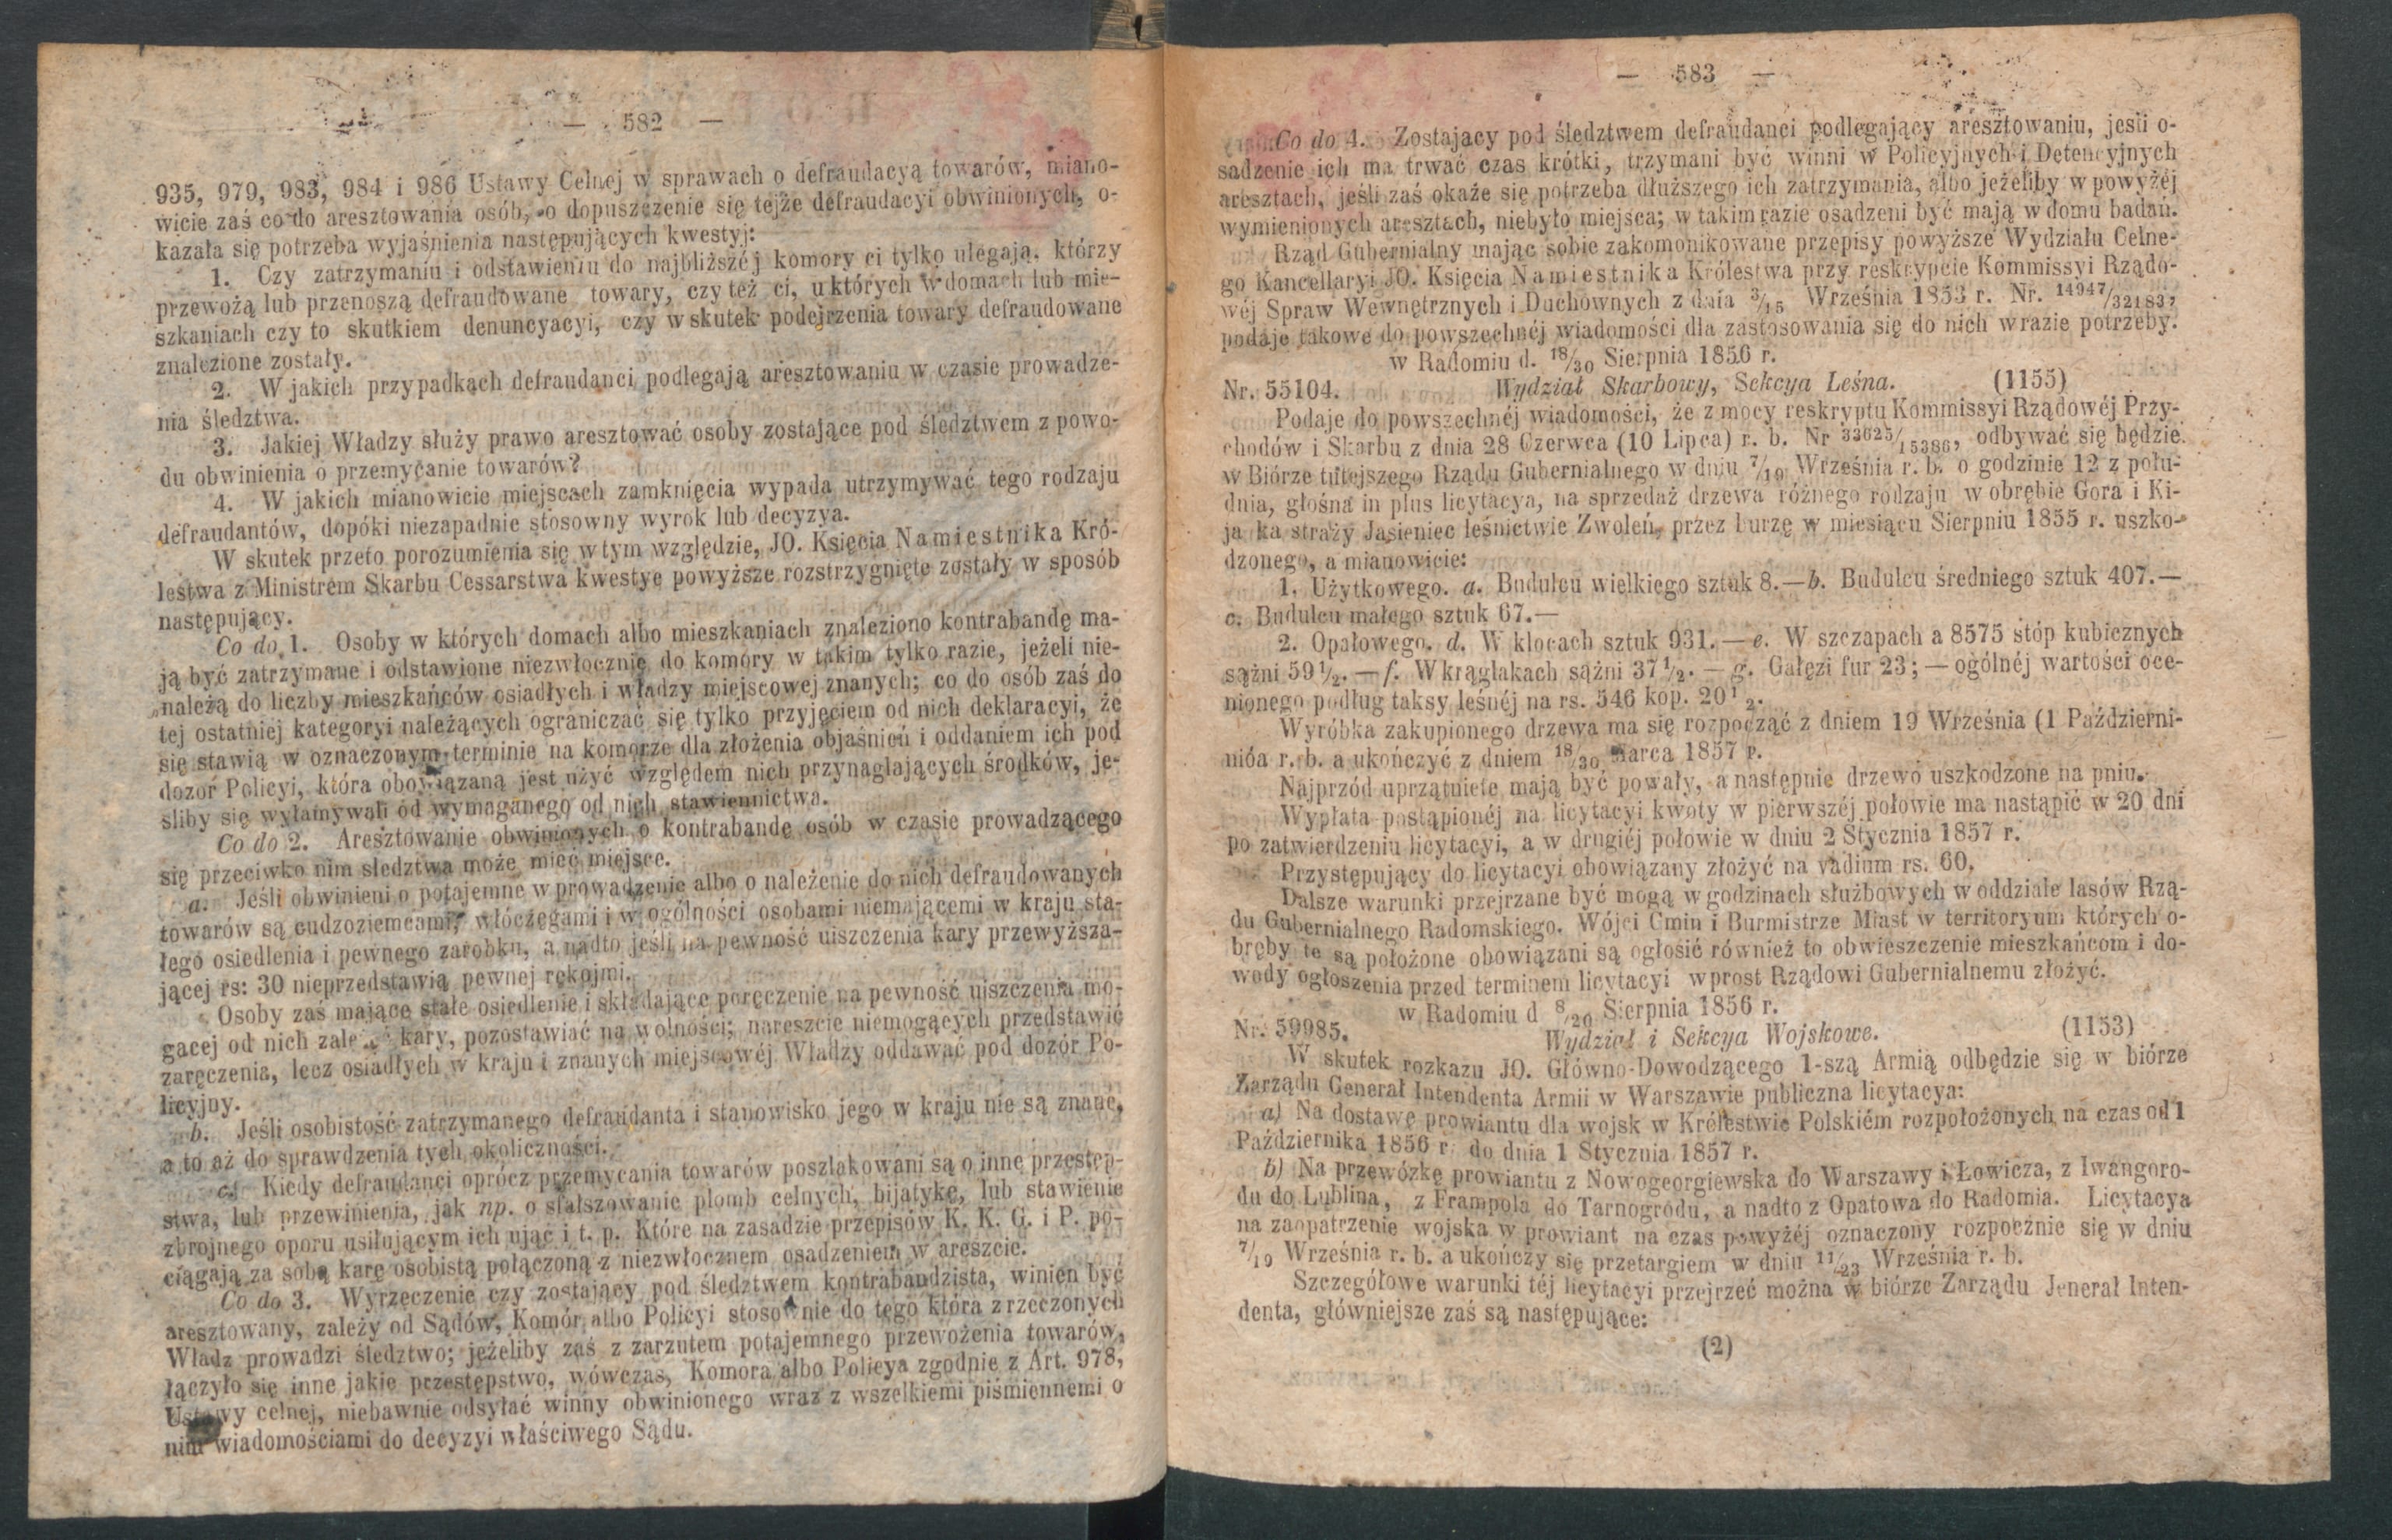 — 582 —
935, 979, 983, 984 i 986 Ustawy Celnej w sprawach o defraudacyą towarów, miano-
wicie zaś co do aresztowania osób, o dopuszczenie się tejże defraudacyi obwinionych, o-
kazała się potrzeba wyjaśnienia następujących kwestyj:
1. Czy zatrzymaniu i odstawieniu do najbliższéj komory ci tylko ulegają, którzy
przewożą lub przenoszą defraudowane towary, czy też ci, u których w domach lub mie-
szkaniach czy to skutkiem denuncyacyi, czy w skutek podejrzenia towary defraudowane
znalezione zostały.
2. W jakich przypadkach defraudanci podlegają aresztowaniu w czasie prowadze-
nia śledztwa.
3. Jakiej Władzy służy prawo aresztować osoby zostające pod śledztwem z powo-
du obwinienia o przemycanie towarów?
4. W jakich mianowicie miejscach zamknięcia wypada utrzymywać tego rodzaju
defraudantów, dopóki niezapadnie stosowny wyrok lub decyzya.
W skutek przeto porozumienia się w tym względzie, JO. Księcia Namiestnika Kró-
lestwa z Ministrem Skarbu Cessarstwa kwestye powyższe rozstrzygnięte zostały w sposób
następujący.
Co do 1. Osoby w których domach albo mieszkaniach znaleziono kontrabandę ma-
ją być zatrzymane i odstawione niezwłocznie do komory w takim tylko razie, jeżeli nie-
należą do liczby mieszkańców osiadłych i władzy miejscowej znanych; co do osób zaś do
tej ostatniej kategoryi należących ograniczać się tylko przyjęciem od nich deklaracyi, że
się stawią w oznaczonym terminie na komorze dla złożenia objaśnień i oddaniem ich pod
dozór Policyi, która obowiązaną jest użyć względem nich przynaglających środków, je-
śliby się wyłamywali od wymaganego od nich stawiennictwa.
Co do 2. Aresztowanie obwinionych o kontrabandę osób w czasie prowadzącego
się przeciwko nim śledztwa może mieć miejsce.
a. Jeśli obwinieni o potajemne wprowadzenie albo o należenie do nich defraudowanych
towarów są cudzoziemcami, włóczęgami i w ogólności osobami niemającemi w kraju sta-
łego osiedlenia i pewnego zarobku, a nadto jeśli na pewność uiszczenia kary przewyższa-
jącej rs: 30 nieprzedstawią pewnej rękojmi.
Osoby zaś mające stałe osiedlenie i składające poręczenie na pewność uiszczenia mo-
gacej od nich kary, pozostawiać na wolności; nareszcie niemogących przedstawić
zaręczenia, lecz osiadłych w kraju i znanych miejscowéj Władzy oddawać pod dozór Po-
licyjny.
b. Jeśli osobistość zatrzymanego defraudanta i stanowisko jego w kraju nie są znane,
a to aż do sprawdzenia tych okoliczności.
c. Kiedy defraudanci oprócz przemycania towarów poszlakowani są o inne przestęp-
stwa, lub przewinienia, jak np. o sfałszowanie plomb celnych, bijatykę, lub stawienie
zbrojnego oporu usiłującym ich ująć i t. p. Które na zasadzie przepisów K. K. G. i P. po-
ciągają za sobą karę osobistą połączoną z niezwłocznem osadzeniem w areszcie.
Co do 3. Wyrzeczenie czy zostający pod śledztwem kontrabandzista, winien być
aresztowany, zależy od Sądów, Komór albo Policyi stosownie do tego która z rzeczonych
Władz prowadzi śledztwo; jeżeliby zaś z zarzutem potajemnego przewożenia towarów,
łączyło się inne jakie przestępstwo, wówczas, Komora albo Policya zgodnie z Art. 978,
Ustawy celnej, niebawnie odsyłać winny obwinionego wraz z wszelkiemi piśmiennemi o
nim wiadomościami do decyzyi właściwego Sądu.
— 583 —
Co do 4. Zostający pod śledztwem defraudanci podlegający aresztowaniu, jeśli o-
sadzenie ich ma trwać czas krótki, trzymani być winni w Policyjnych i Detencyjnych
aresztach, jeśli zaś okaże się potrzeba dłuższego ich zatrzymania, albo jeżeliby w powyżéj
wymienionych aresztach, niebyło miejsca; w takim razie osadzeni być mają w domu badań.
Rząd Gubernialny mając sobie zakomonikowane przepisy powyższe Wydziału Celne-
go Kancellaryi JO. Księcia Namiestnika Królestwa przy reskrypcie Kommissyi Rządo-
wéj Spraw Wewnętrznych i Duchownych z dnia 3/15 Września 1853 r. Nr. 14947/32183,
podaje takowe do powszechnéj wiadomości dla zastosowania się do nich w razie potrzeby.
w Radomiu d. 18/30 Sierpnia 1856 r.
Nr. 55104. Wydział Skarbowy, Sekcya Leśna. (1155)
Podaje do powszechnéj wiadomości, że z mocy reskryptu Kommissyi Rządowéj Przy-
chodów i Skarbu z dnia 28 Czerwca (10 Lipca) r. b. Nr 33625/15386, odbywać się będzie
w Biórze tutejszego Rządu Gubernialnego w dniu 7/19 Września r. b. o godzinie 12 z połu-
dnia, głośna in plus licytacya, na sprzedaż drzewa różnego rodzaju w obrębie Gora i Ki-
ja ka straży Jasieniec leśnictwie Zwoleń, przez burzę w miesiącu Sierpniu 1855 r. uszko-
dzonego, a mianowicie:
1. Użytkowego. a. Budulcu wielkiego sztuk 8.—b. Budulcu średniego sztuk 407.—
c. Budulcu małego sztuk 67.—
2. Opałowego. d. W klocach sztuk 931.—e. W szczapach a 8575 stóp kubicznych
sążni 59 1/2.—f. W krąglakach sążni 37 1/2.—g. Gałęzi fur 23;—ogólnéj wartości oce-
nionego podług taksy leśnéj na rs. 546 kop. 20 1/2.
Wyróbka zakupionego drzewa ma się rozpocząć z dniem 19 Września (1 Październi-
nióa r. b. a ukończyć z dniem 18/30 Marca 1857 r.
Najprzód uprzątniete mają być powały, a następnie drzewo uszkodzone na pniu.
Wypłata postąpionéj na licytacyi kwoty w pierwszéj połowie ma nastąpić w 20 dni
po zatwierdzeniu licytacyi, a w drugiéj połowie w dniu 2 Stycznia 1857 r.
Przystępujący do licytacyi obowiązany złożyć na vadium rs. 60.
Dalsze warunki przejrzane być mogą w godzinach służbowych w oddziale lasów Rzą-
du Gubernialnego Radomskiego. Wójci Gmin i Burmistrze Miast w territoryum których o-
bręby te są położone obowiązani są ogłosić również to obwieszczenie mieszkańcom i do-
wody ogłoszenia przed terminem licytacyi wprost Rządowi Gubernialnemu złożyć.
w Radomiu d 8/20 Sierpnia 1856 r.
Nr. 59985. Wydział i Sekcya Wojskowe. (1153)
W skutek rozkazu JO. Główno-Dowodzącego 1-szą Armią odbędzie się w biórze
Zarządu Generał Intendenta Armii w Warszawie publiczna licytacya:
a) Na dostawę prowiantu dla wojsk w Królestwie Polskiém rozpołożonych, na czas od 1
Października 1856 r. do dnia 1 Stycznia 1857 r.
b) Na przewózkę prowiantu z Nowogeorgiewska do Warszawy i Łowicza, z Iwangoro-
du do Lublina, z Frampola do Tarnogrodu, a nadto z Opatowa do Radomia. Licytacya
na zaopatrzenie wojska w prowiant na czas powyżéj oznaczony rozpocznie się w dniu
7/19 Września r. b. a ukończy się przetargiem w dniu 11/23 Września r. b.
Szczegółowe warunki téj licytacyi przejrzeć można w biórze Zarządu Jenerał Inten-
denta, główniejsze zaś są następujące:
(2)